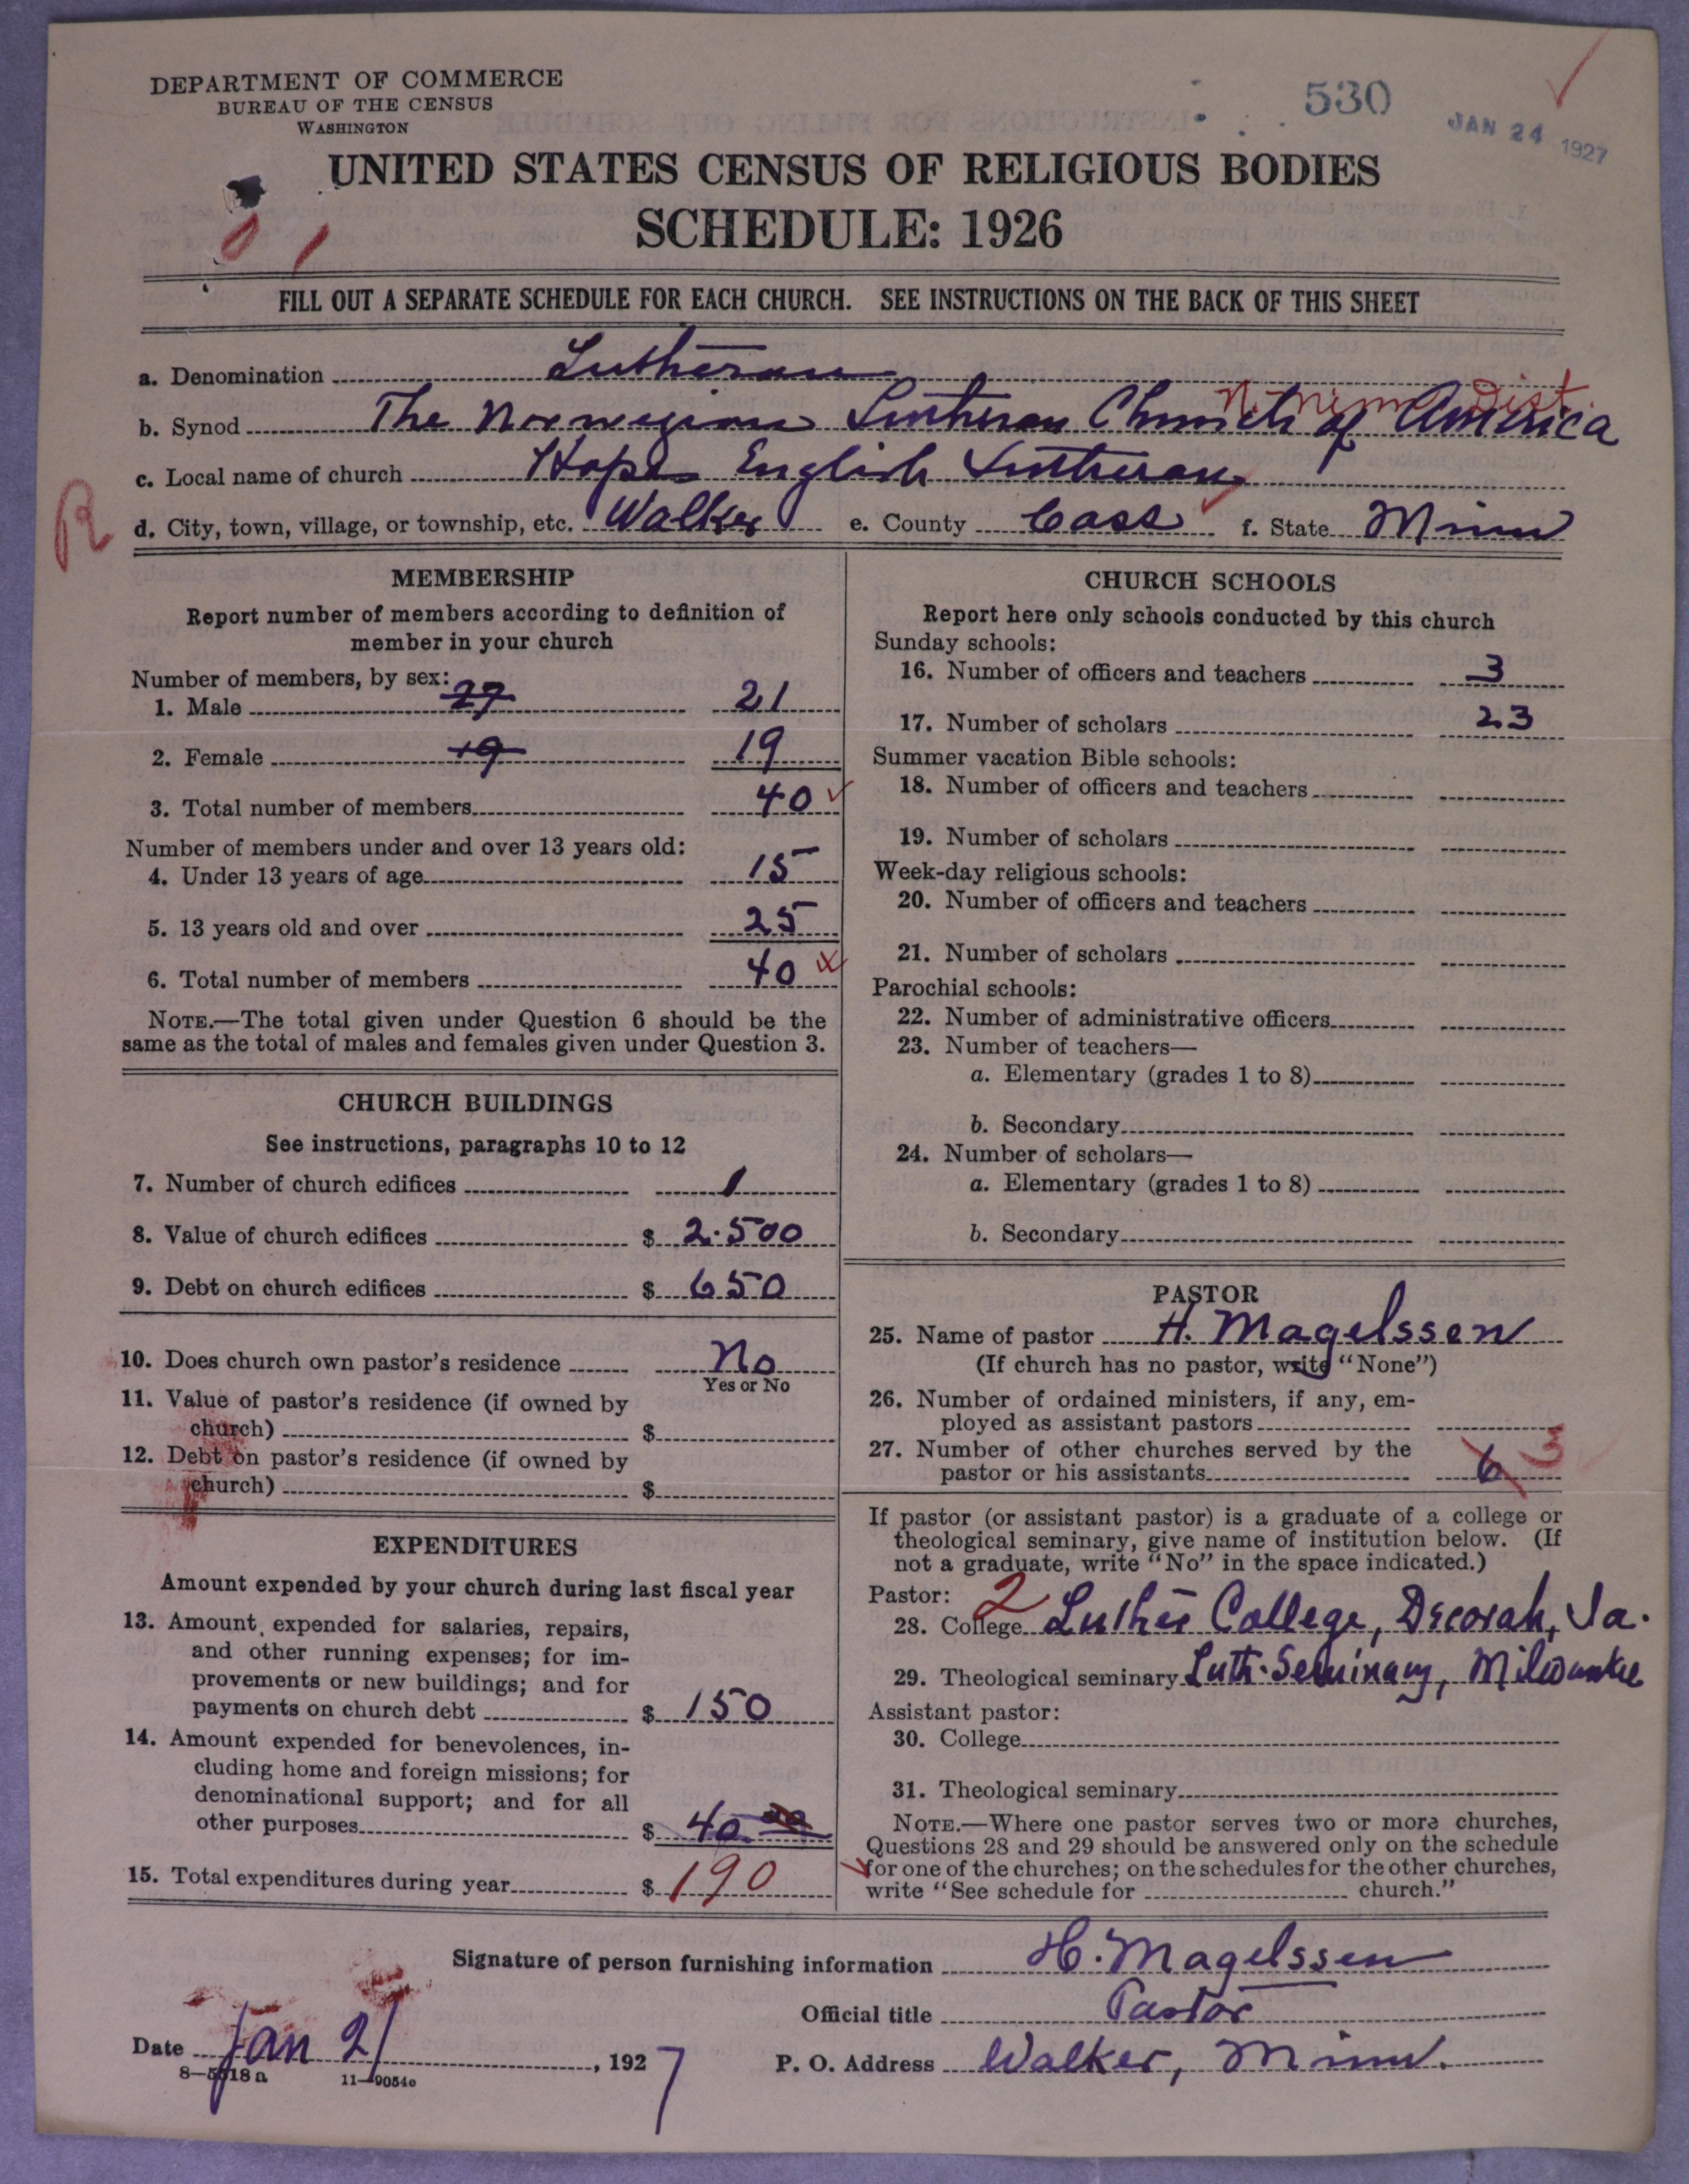 DEPARTMENT OF COMMERCE
BUREAU OF THE CENSUS
WASHINGTON
530
JAN 24 1927
UNITED STATES CENSUS OF RELIGIOUS BODIES
SCHEDULE: 1926
FILL OUT A SEPARATE SCHEDULE FOR EACH CHURCH. SEE INSTRUCTIONS ON THE BACK OF THIS SHEET
a. Denomination Lutheran
N. Minn Dist.
b. Synod The Norwegian Lutheran Church of America
c. Local name of church Hope English Lutheran
R
d. City, town, village, or township, etc. Walker e. County Cass f. State Minn
MEMBERSHIP
Report number of members according to definition of
member in your church
Number of members, by sex:
1. Male 27 21
2. Female 19 19
3. Total number of members 40
Number of members under and over 13 years old:
4. Under 13 years of age 15
5. 13 years old and over 25
6. Total number of members 40
NOTE.—The total given under Question 6 should be the
same as the total of males and females given under Question 3.
CHURCH BUILDINGS
See instructions, paragraphs 10 to 12
7. Number of church edifices 1
8. Value of church edifices $ 2.500
9. Debt on church edifices $ 650
10. Does church own pastor's residence No
Yes or No
11. Value of pastor's residence (if owned by
church) $
12. Debt on pastor's residence (if owned by
church) $
EXPENDITURES
Amount expended by your church during last fiscal year
13. Amount expended for salaries, repairs,
and other running expenses; for im-
provements or new buildings; and for
payments on church debt $ 150
14. Amount expended for benevolences, in-
cluding home and foreign missions; for
denominational support; and for all
other purposes $ 40.00
15. Total expenditures during year $ 190
CHURCH SCHOOLS
Report here only schools conducted by this church
Sunday schools:
16. Number of officers and teachers 3
17. Number of scholars 23
Summer vacation Bible schools:
18. Number of officers and teachers
19. Number of scholars
Week-day religious schools:
20. Number of officers and teachers
21. Number of scholars
Parochial schools:
22. Number of administrative officers
23. Number of teachers—
a. Elementary (grades 1 to 8)
b. Secondary
24. Number of scholars—
a. Elementary (grades 1 to 8)
b. Secondary
PASTOR
25. Name of pastor H. Magelssen
(If church has no pastor, write "None")
26. Number of ordained ministers, if any, em-
ployed as assistant pastors
27. Number of other churches served by the
pastor or his assistants 6 3
If pastor (or assistant pastor) is a graduate of a college or
theological seminary, give name of institution below. (If
not a graduate, write "No" in the space indicated.)
Pastor: 2
28. College Luther College, Decorah, Ia.
29. Theological seminary Luth. Seminary, Milwaukee
Assistant pastor:
30. College
31. Theological seminary
NOTE.—Where one pastor serves two or more churches,
Questions 28 and 29 should be answered only on the schedule
for one of the churches; on the schedules for the other churches,
write "See schedule for church."
Signature of person furnishing information H. Magelssen
Official title Pastor
Date Jan 21, 1927
P. O. Address Walker, Minn.
8—5618a 11—9054c